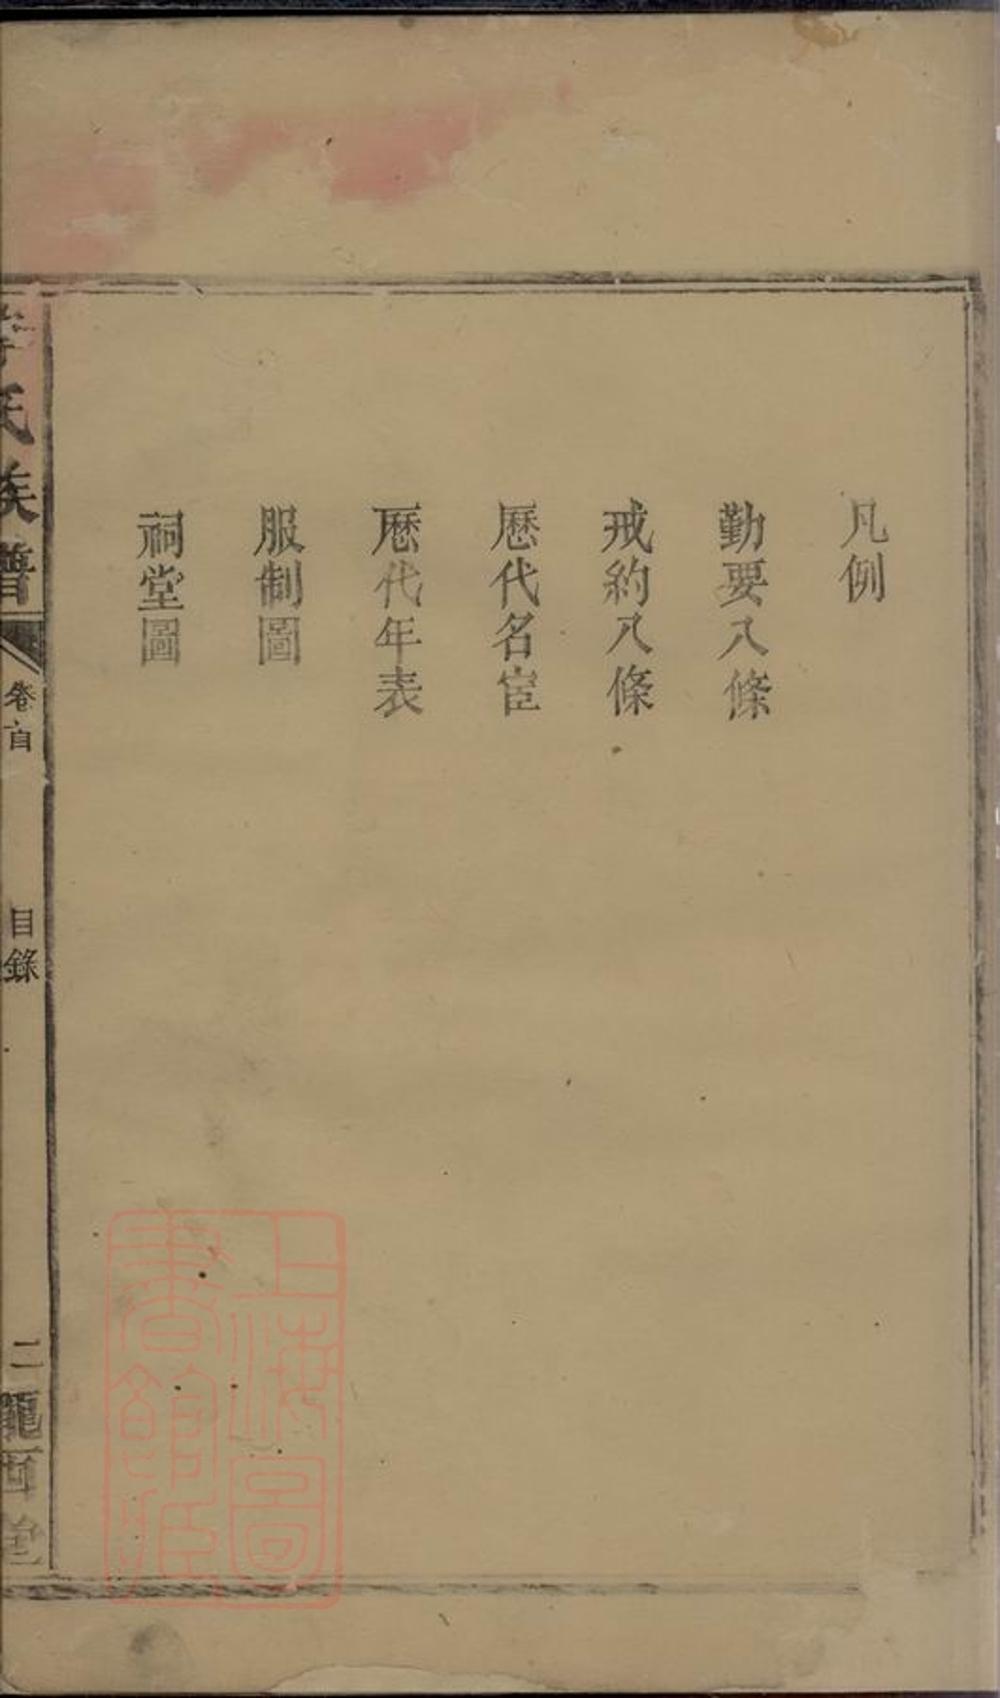 凡例
勤要八條
戒約八條
歷代名宦
歷代年表
服制圖
祠堂圖
李氏族譜
卷首
目錄
二
隴西堂
上海圖
書館藏